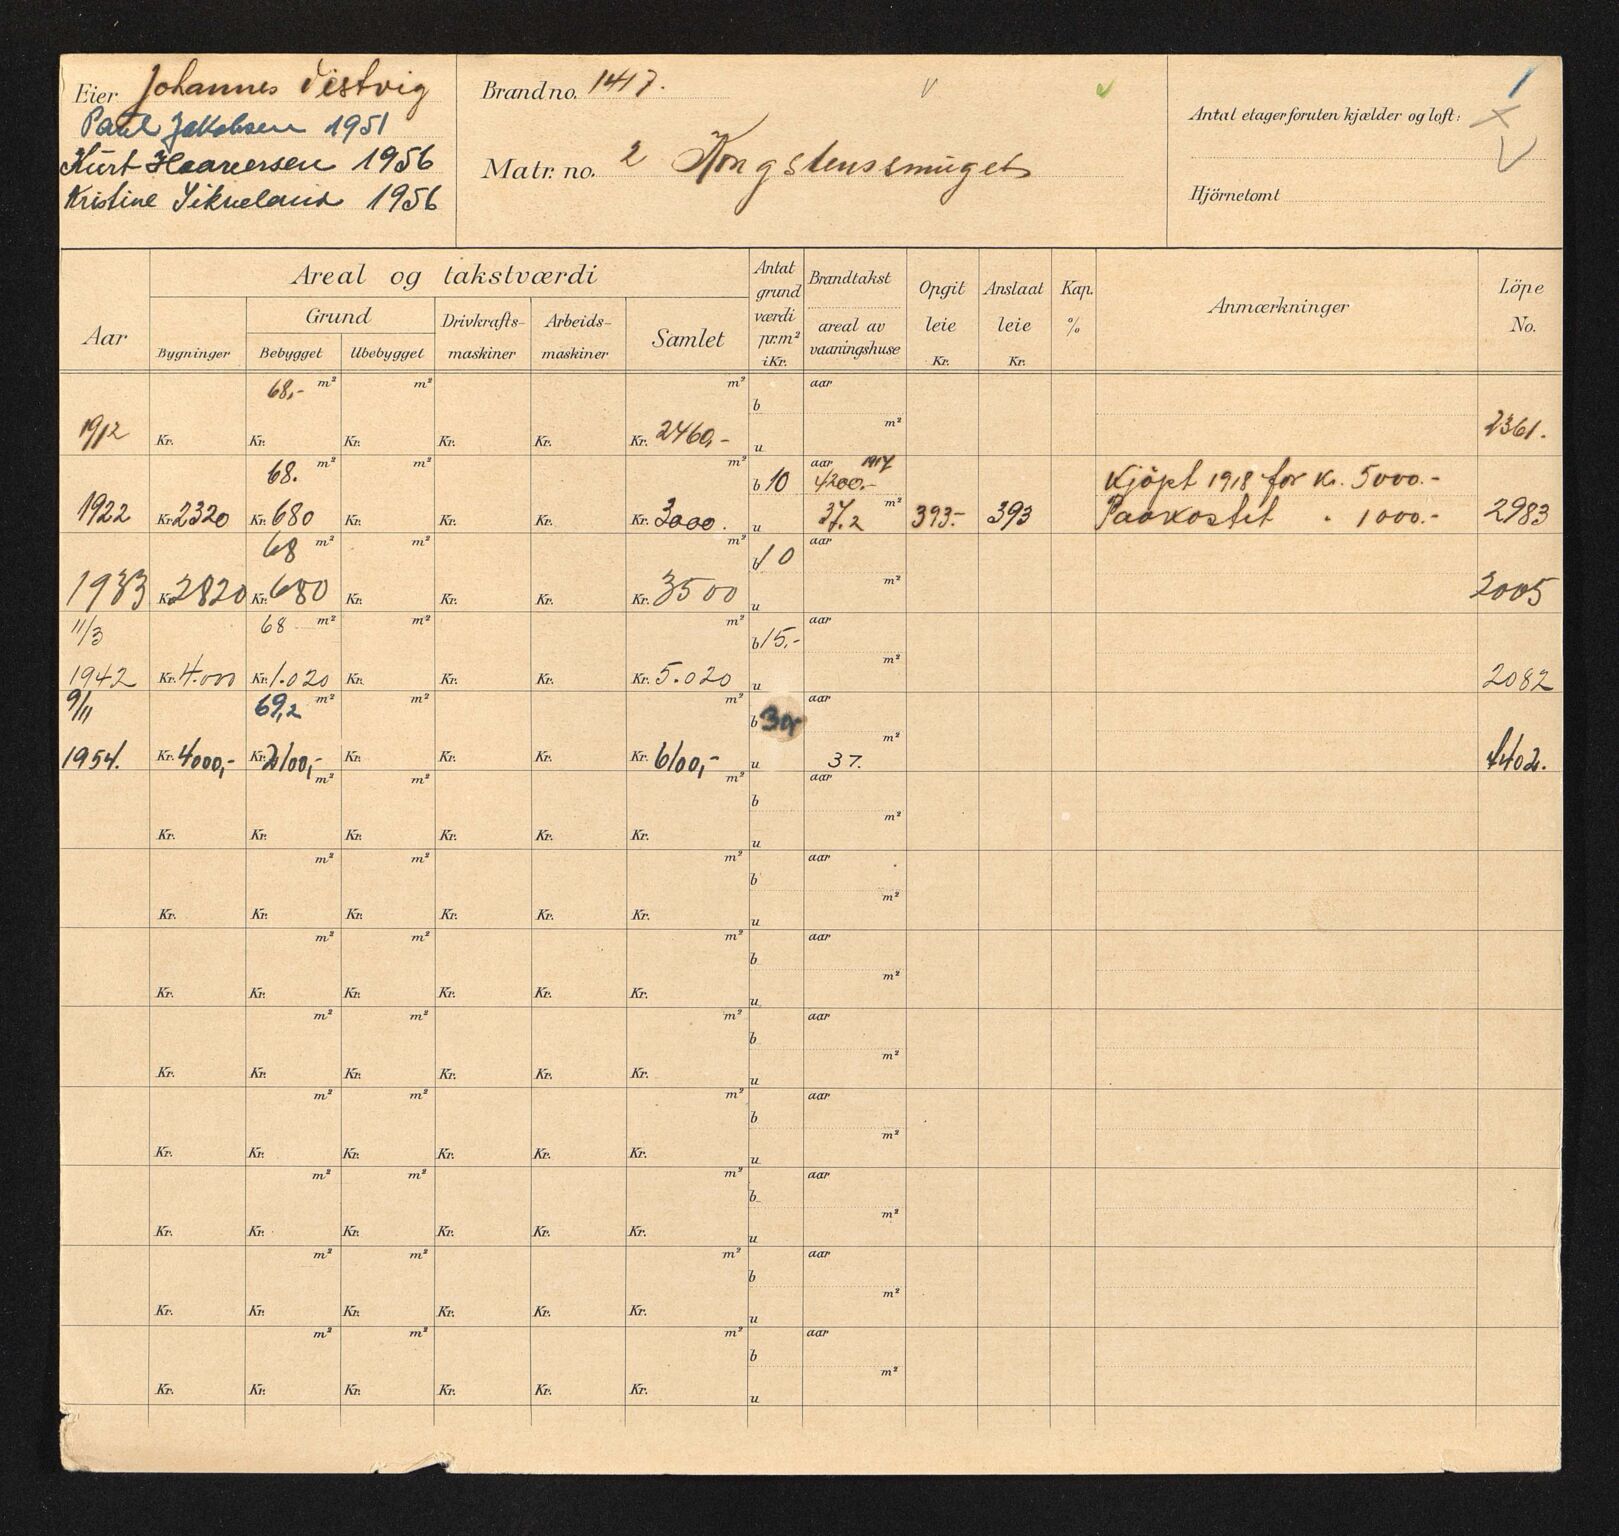 Eier Johannes Vistvig
Paul Jakobsen 1951
Kurt Haaversen 1956
Kristine 1956
Brand no. 1417.
Matr. no. 2 Kongstenssmuget
Antal etager foruten kjælder og loft: 1
Hjörnetomt
Aar
Areal og takstværdi
Bygninger
Grund
Bebygget Ubebygget
Drivkrafts-maskiner
Arbeids-maskiner
Samlet
Antat grund værdi pr. m² i Kr.
Brandtakst
areal av vaaningshuse
Opgit leie Kr.
Anslaat leie Kr.
Kap. %
Anmærkninger
Löpe No.
68,- m² m² m² b aar
1912 Kr. Kr. Kr. Kr. Kr. Kr. 2460,- u m² 2361.
68. m² m² m² b 10 aar 1917 4200.- Kjöpt 1918 for Kr. 5000.-
1922 Kr. 2320 Kr. 680 Kr. Kr. Kr. Kr. 3000. u 37.2 m² 393.- 393 Paakostet " 1000.- 2983
68 m² m² m² b 10 aar
1933 Kr. 2820 Kr. 680 Kr. Kr. Kr. Kr. 3500 u m² 2005
11/3 68 m² m² m² b 15,- aar
1942 Kr. 4.000 Kr. 1.020 Kr. Kr. Kr. Kr. 5.020 u m² 2082
9/11 69,2 m² m² m² b aar
1954. Kr. 4000,- Kr. 2100,- Kr. Kr. Kr. Kr. 6100,- u 37. m² 1402.
m² m² m² b aar
Kr. Kr. Kr. Kr. Kr. Kr. u m²
m² m² m² b aar
Kr. Kr. Kr. Kr. Kr. Kr. u m²
m² m² m² b aar
Kr. Kr. Kr. Kr. Kr. Kr. u m²
m² m² m² b aar
Kr. Kr. Kr. Kr. Kr. Kr. u m²
m² m² m² b aar
Kr. Kr. Kr. Kr. Kr. Kr. u m²
m² m² m² b aar
Kr. Kr. Kr. Kr. Kr. Kr. u m²
m² m² m² b aar
Kr. Kr. Kr. Kr. Kr. Kr. u m²
m² m² m² b aar
Kr. Kr. Kr. Kr. Kr. Kr. u m²